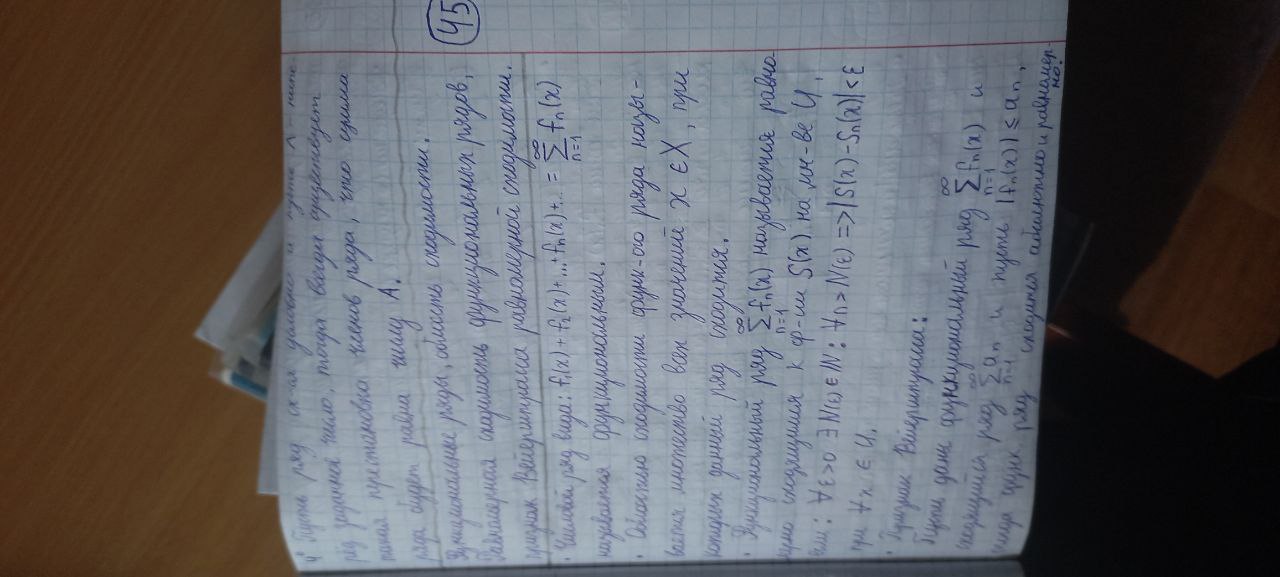 4° Пусть ряд сх-ся условно и пусть A - ника-
ред заданное число, тогда всегда существует
такая престановка членов ряда, что сумма
ряда будет равна числу A.
45
Функциональные ряды, область сходимости.
Равномерная сходимость функциональных рядов,
признак Вейерштрасса равномерной сходимости.
· Числовой ряд вида: f₁(x) + f₂(x) + ... + fₙ(x) + ... = ∑ₙ₌₁^∞ fₙ(x)
называется функциональным.
· Областью сходимости функ-ого ряда назы-
вается множество всех значений x ∈ X, при
которых данный ряд сходится.
· Функциональный ряд ∑ₙ₌₁^∞ fₙ(x) называется равно-
мерно сходящимся к ф-ии S(x) на мн-ве U,
если: ∀ε>0 ∃N(ε)∈ℕ: ∀n>N(ε) => |S(x)-Sₙ(x)|<ε
при ∀x ∈ U.
· Признак Вейерштрасса:
Пусть дан функциональный ряд ∑ₙ₌₁^∞ fₙ(x) и
сходящийся ряд ∑ₙ₌₁^∞ aₙ и пусть |fₙ(x)| ≤ aₙ,
тогда функ ряд сходится абсолютно и равномер-
но.